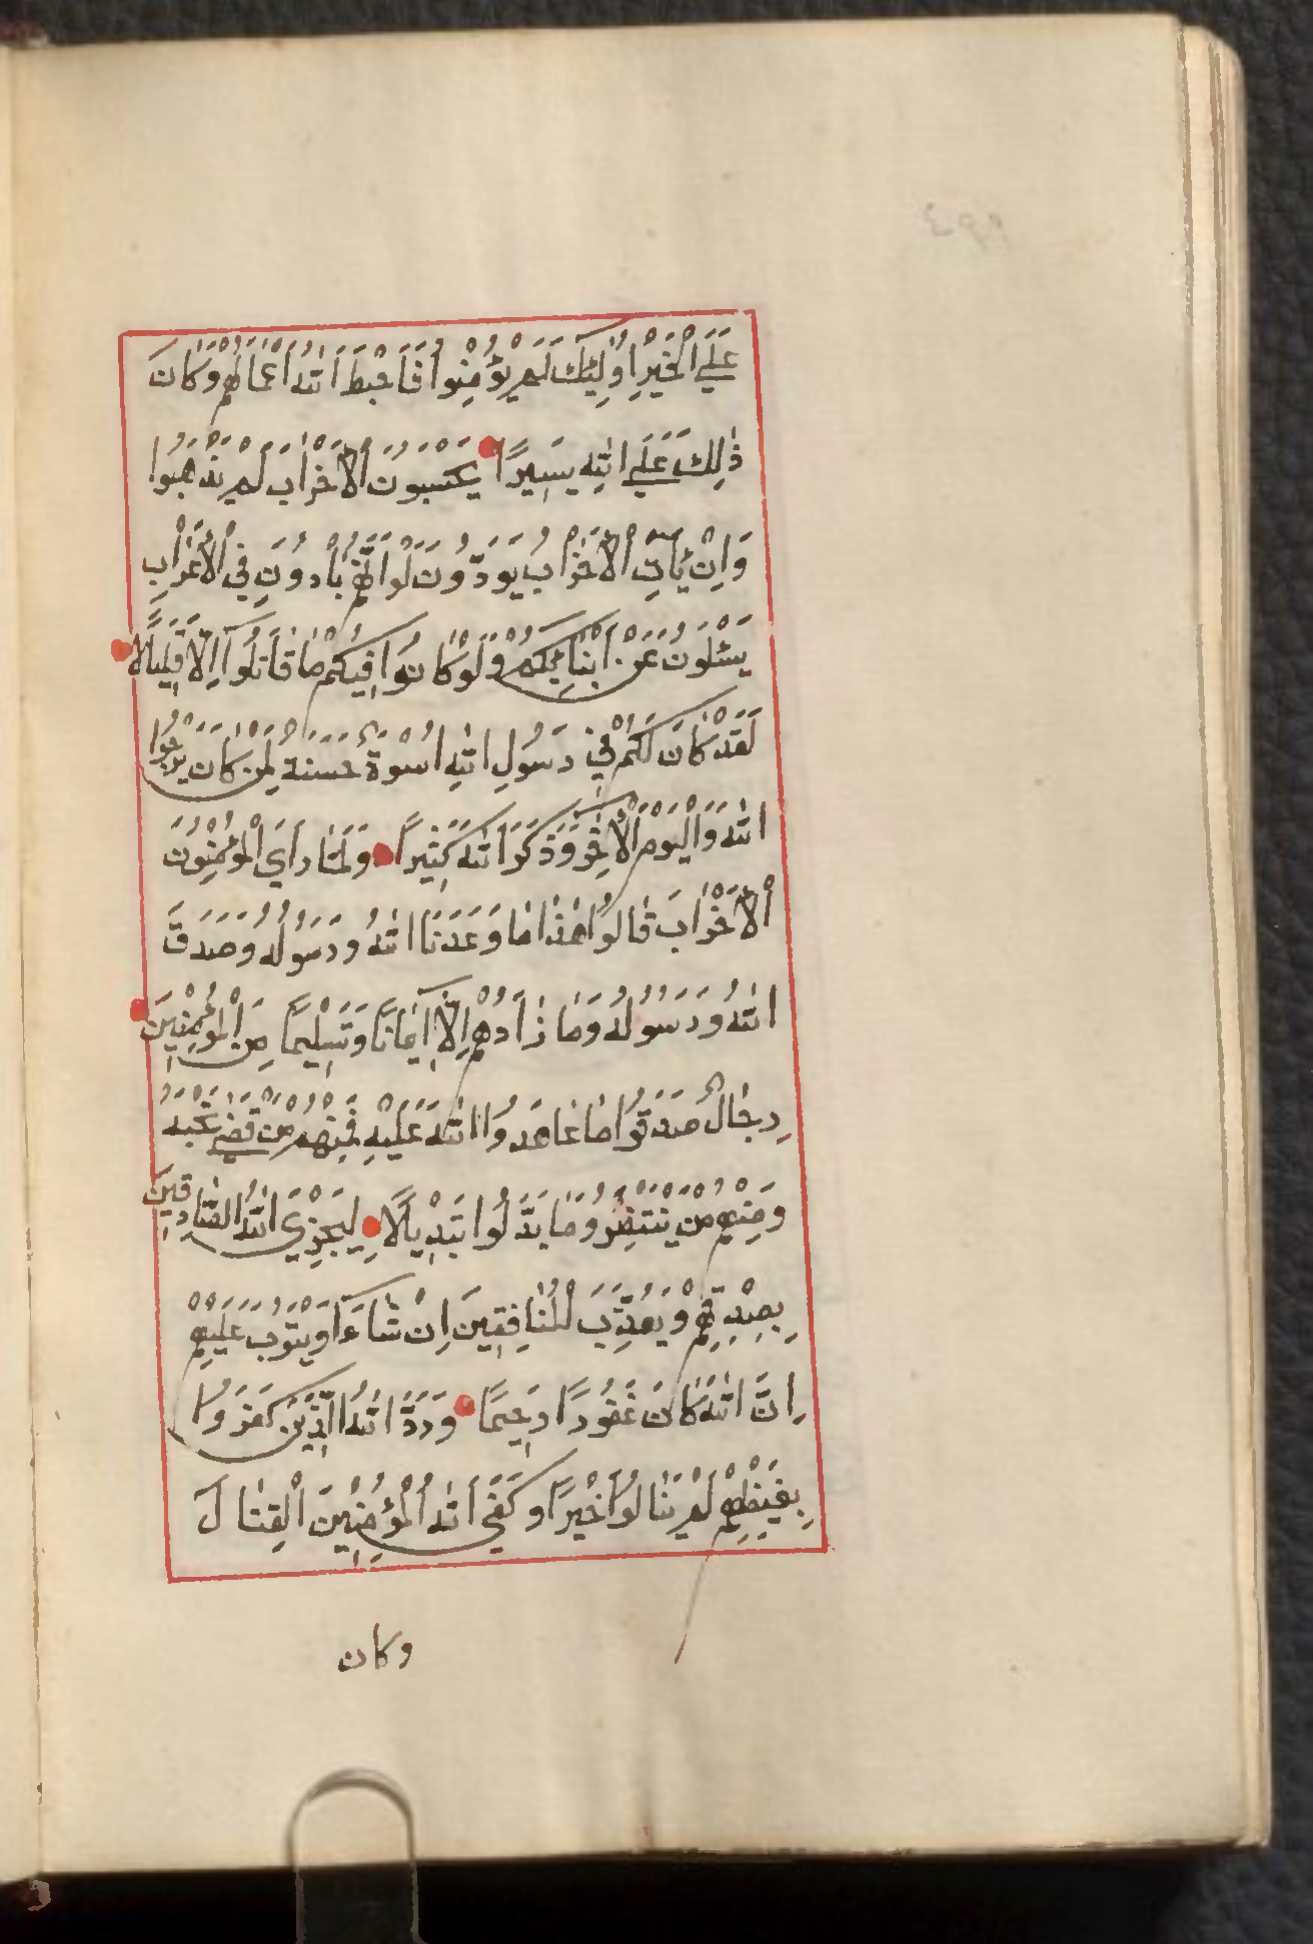 عَلَي الْخَيْرِ اُولٰئِكَ لَمْ يُؤْمِنُوا فَاَحْبَطَ اللهُ اَعْمَالَهُمْ وَكَانَ
ذٰلِكَ عَلَي اللهِ يَسِيرًا يَحْسَبُونَ الْاَحْزَابَ لَمْ يَذْهَبُوا
وَاِنْ يَأْتِ الْاَحْزَابُ يَوَدُّونَ لَوْ اَنَّهُمْ بَادُونَ فِي الْاَعْرَابِ
يَسْئَلُونَ عَنْ اَنْبَائِكُمْ وَلَوْ كَانُوا فِيكُمْ مَا قَاتَلُوآ اِلَّا قَلِيلًا
لَقَدْ كَانَ لَكُمْ فِي رَسُولِ اللهِ اُسْوَةٌ حَسَنَةٌ لِمَنْ كَانَ يَرْجُوا
اللهَ وَالْيَوْمَ الْاٰخِرَ وَذَكَرَ اللهَ كَثِيرًا وَلَمَّا رَاَي الْمُؤْمِنُونَ
الْاَحْزَابَ قَالُوا هٰذَا مَا وَعَدَنَا اللهُ وَرَسُولُهُ وَصَدَقَ
اللهُ وَرَسُولُهُ وَمَا زَادَهُمْ اِلَّآ اِيمَانًا وَتَسْلِيمًا مِنَ الْمُؤْمِنِينَ
رِجَالٌ صَدَقُوا مَا عَاهَدُوا اللهَ عَلَيْهِ فَمِنْهُمْ مَنْ قَضٰي نَحْبَهُ
وَمِنْهُمْ مَنْ يَنْتَظِرُ وَمَا بَدَّلُوا تَبْدِيلًا لِيَجْزِيَ اللهُ الصَّادِقِينَ
بِصِدْقِهِمْ وَيُعَذِّبَ الْمُنَافِقِينَ اِنْ شَآءَ اَوْ يَتُوبَ عَلَيْهِمْ
اِنَّ اللهَ كَانَ غَفُورًا رَحِيمًا وَرَدَّ اللهُ الَّذِينَ كَفَرُوا
بِغَيْظِهِمْ لَمْ يَنَالُوا خَيْرًا وَكَفَي اللهُ الْمُؤْمِنِينَ الْقِتَالَ
وكان